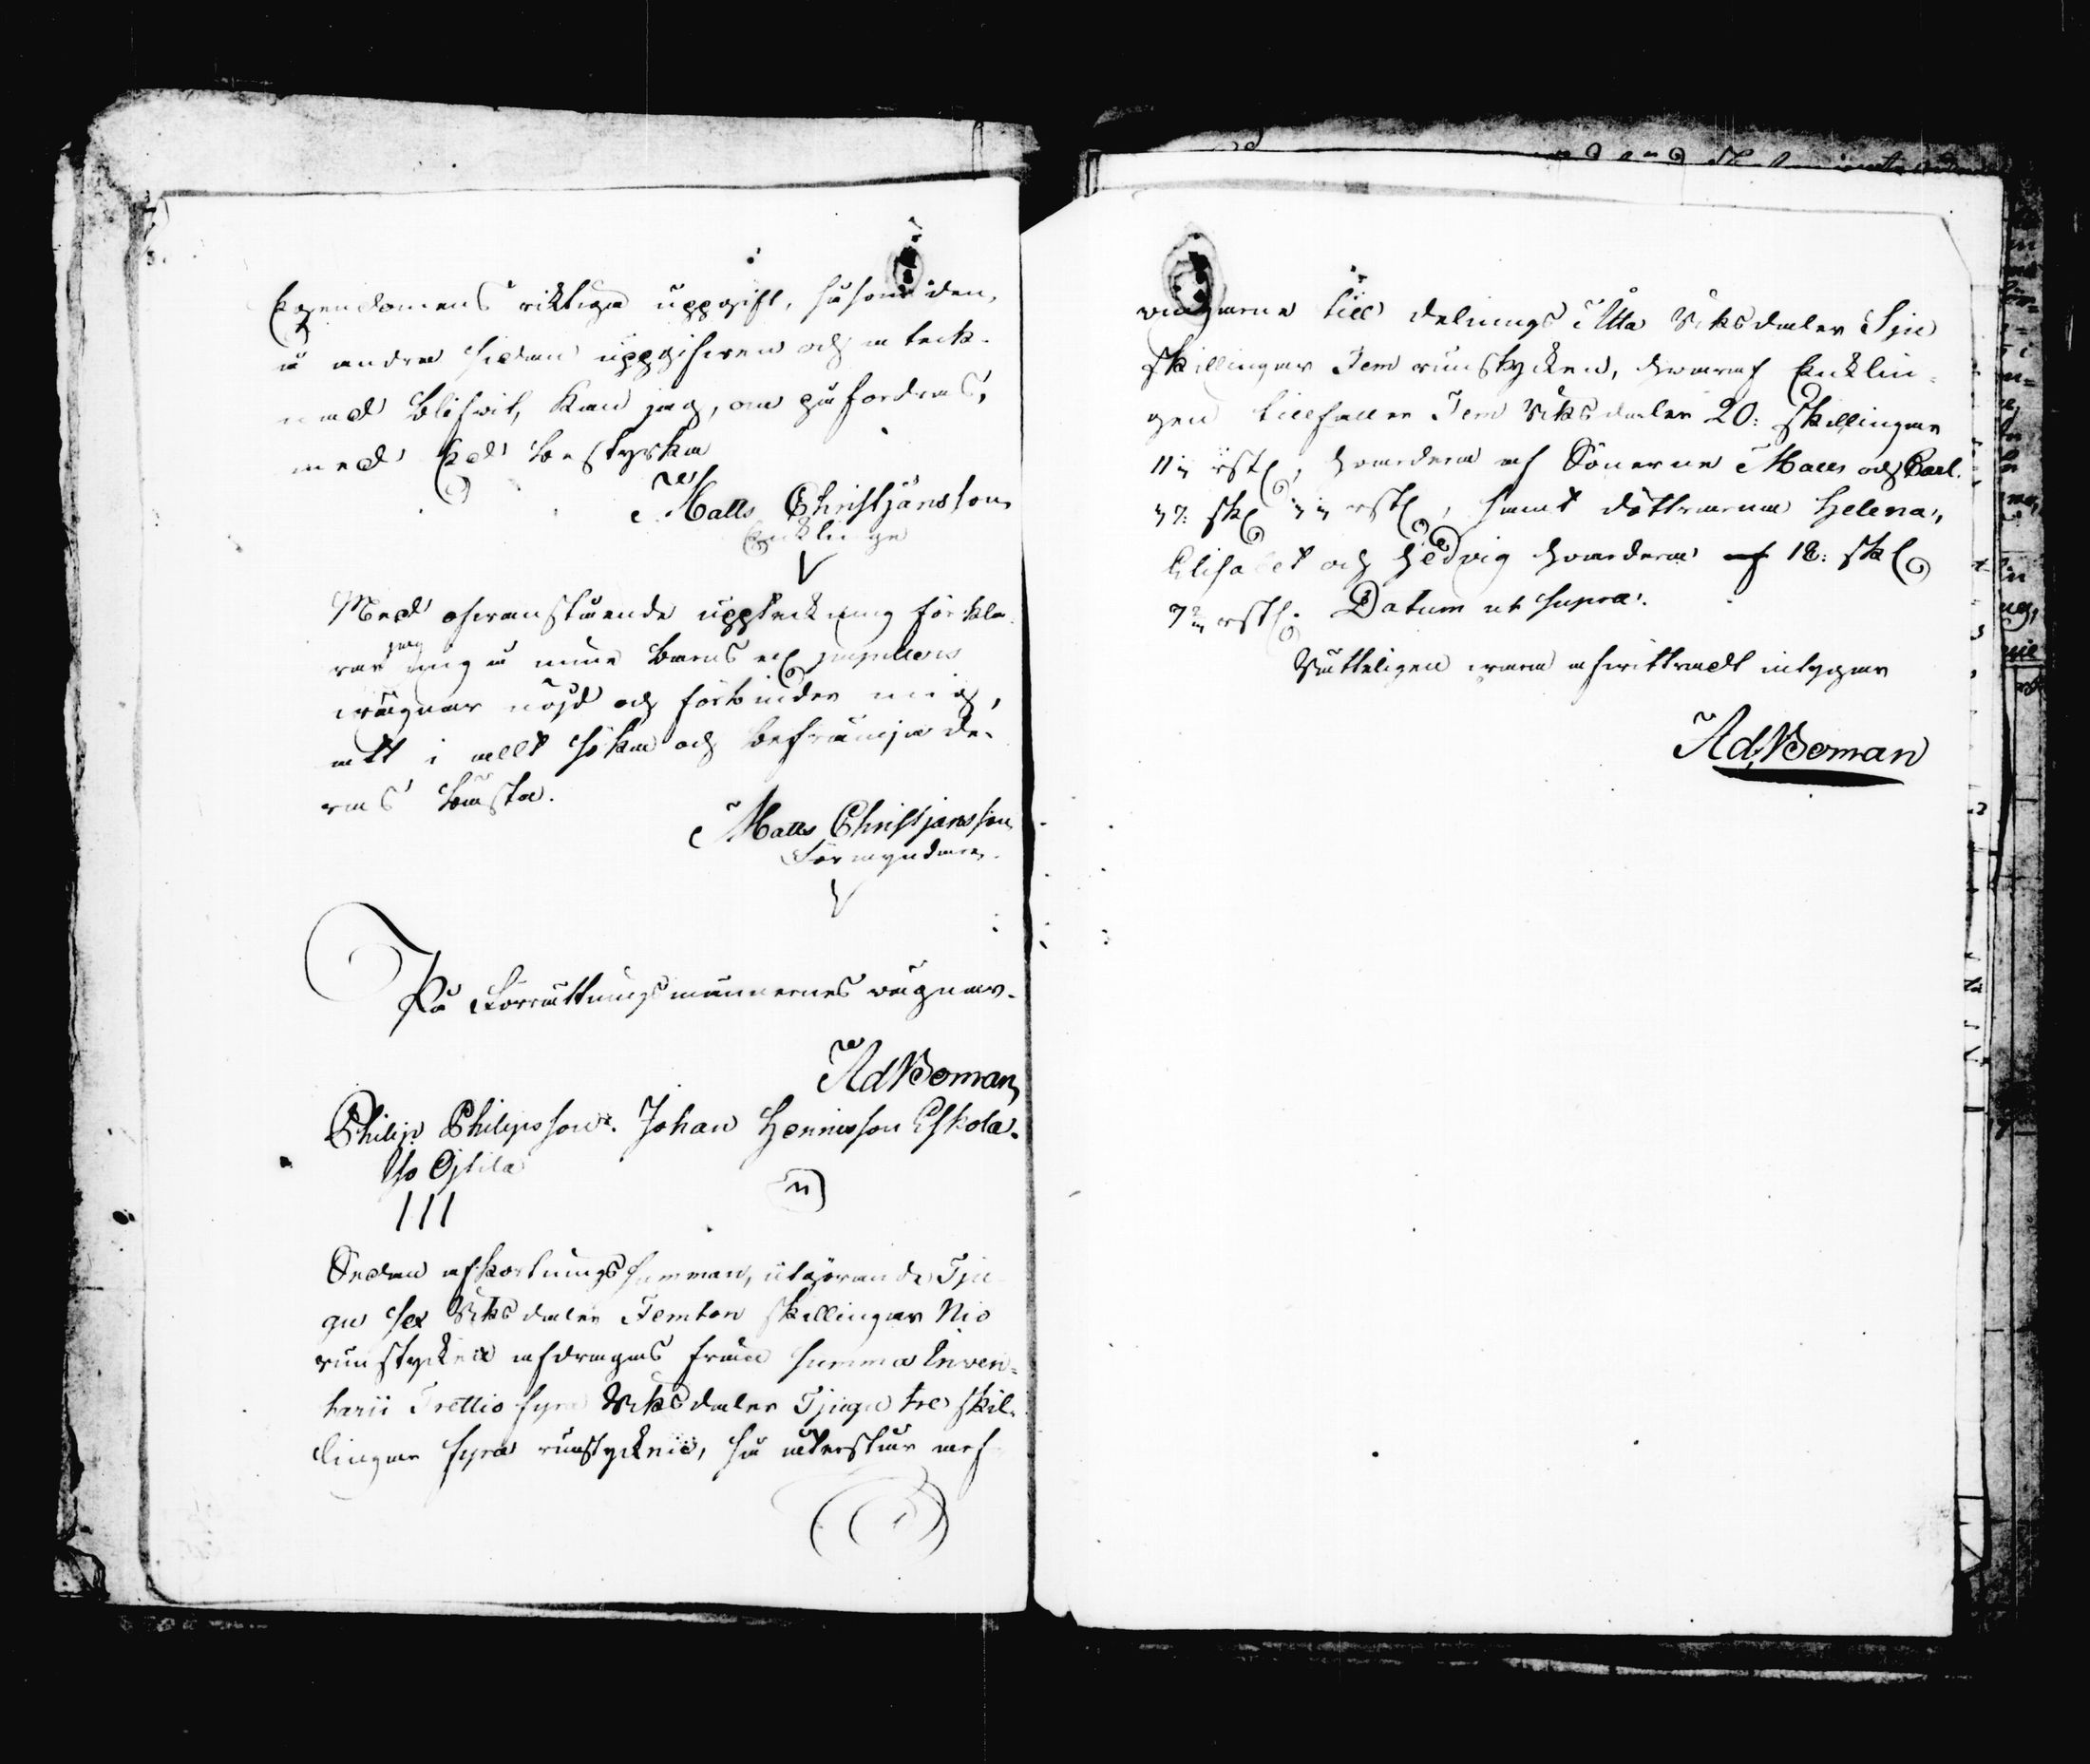 Egendomens riktiga uppgift, såsom den,
å andra sidan uppgifwen och anteck-
nad blifwit, kan jag, om på fordras,
med Ed bestyrka
Matts Christjansson
Enklinge
Med ofwanstående uppteckning förkla-
rar jag mig å mina barns och pupillers
wägnar nöjd och förbinder mig,
att i allt söka och befrämja de-
ras bästa.
Matts Christjansson
Förmyndare.
På Förrättningsmännernes wägnar.
Ad Boman
Philip Philipsson. Johan Hennisson Eskola.
Ojtila
III
Sedan afkortnings summan, utgörande Tju-
gu sex Riksdaler Femton skillingar Nio
runstycken afdragas från summa Inwen-
tarii Trettio fyra Riksdaler Tjugu tre skil-
lingar fyra runstycken, så återstår arf-
wingarne till delnings Åtta Riksdaler Sju
skillingar Fem runstycken, hwaraf Enklin-
gen tillfaller Fem Riksdaler 20: skillingar
11 rst, hwardera af Sönerne Matts och Carl.
37: sk rst, samt döttrarna Helena,
Elisabet och Hedvig hwardera af 18: sk
7 rst. Datum ut supra.
Rätteligen wara afwittradt intygar
Ad. Boman